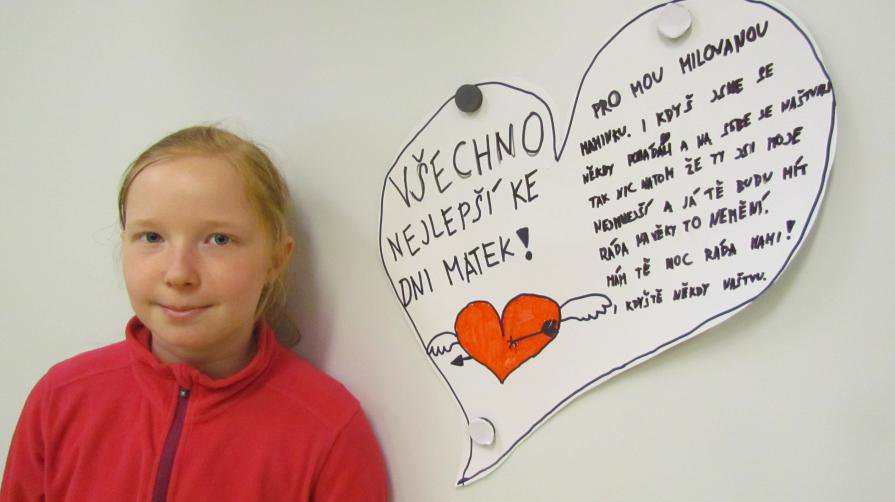 VŠECHNO
NEJLEPŠÍ KE
DNI MATEK!
PRO MOU MILOVANOU
MAMINKU. I KDYŠ JSME SE
NĚKDY POHÁDALI A NA SEBE SE NAŠTVALI
TAK NIC NATOM ŽE TY JSI MOJE
NEJMILEJŠÍ A JÁ TĚ BUDU MÍT
RÁDA NAVĚKY TO NEMĚNÍ.
MÁM TĚ MOC RÁDA MAMI!
I KDYŠ TĚ NĚKDY NAŠTVU.